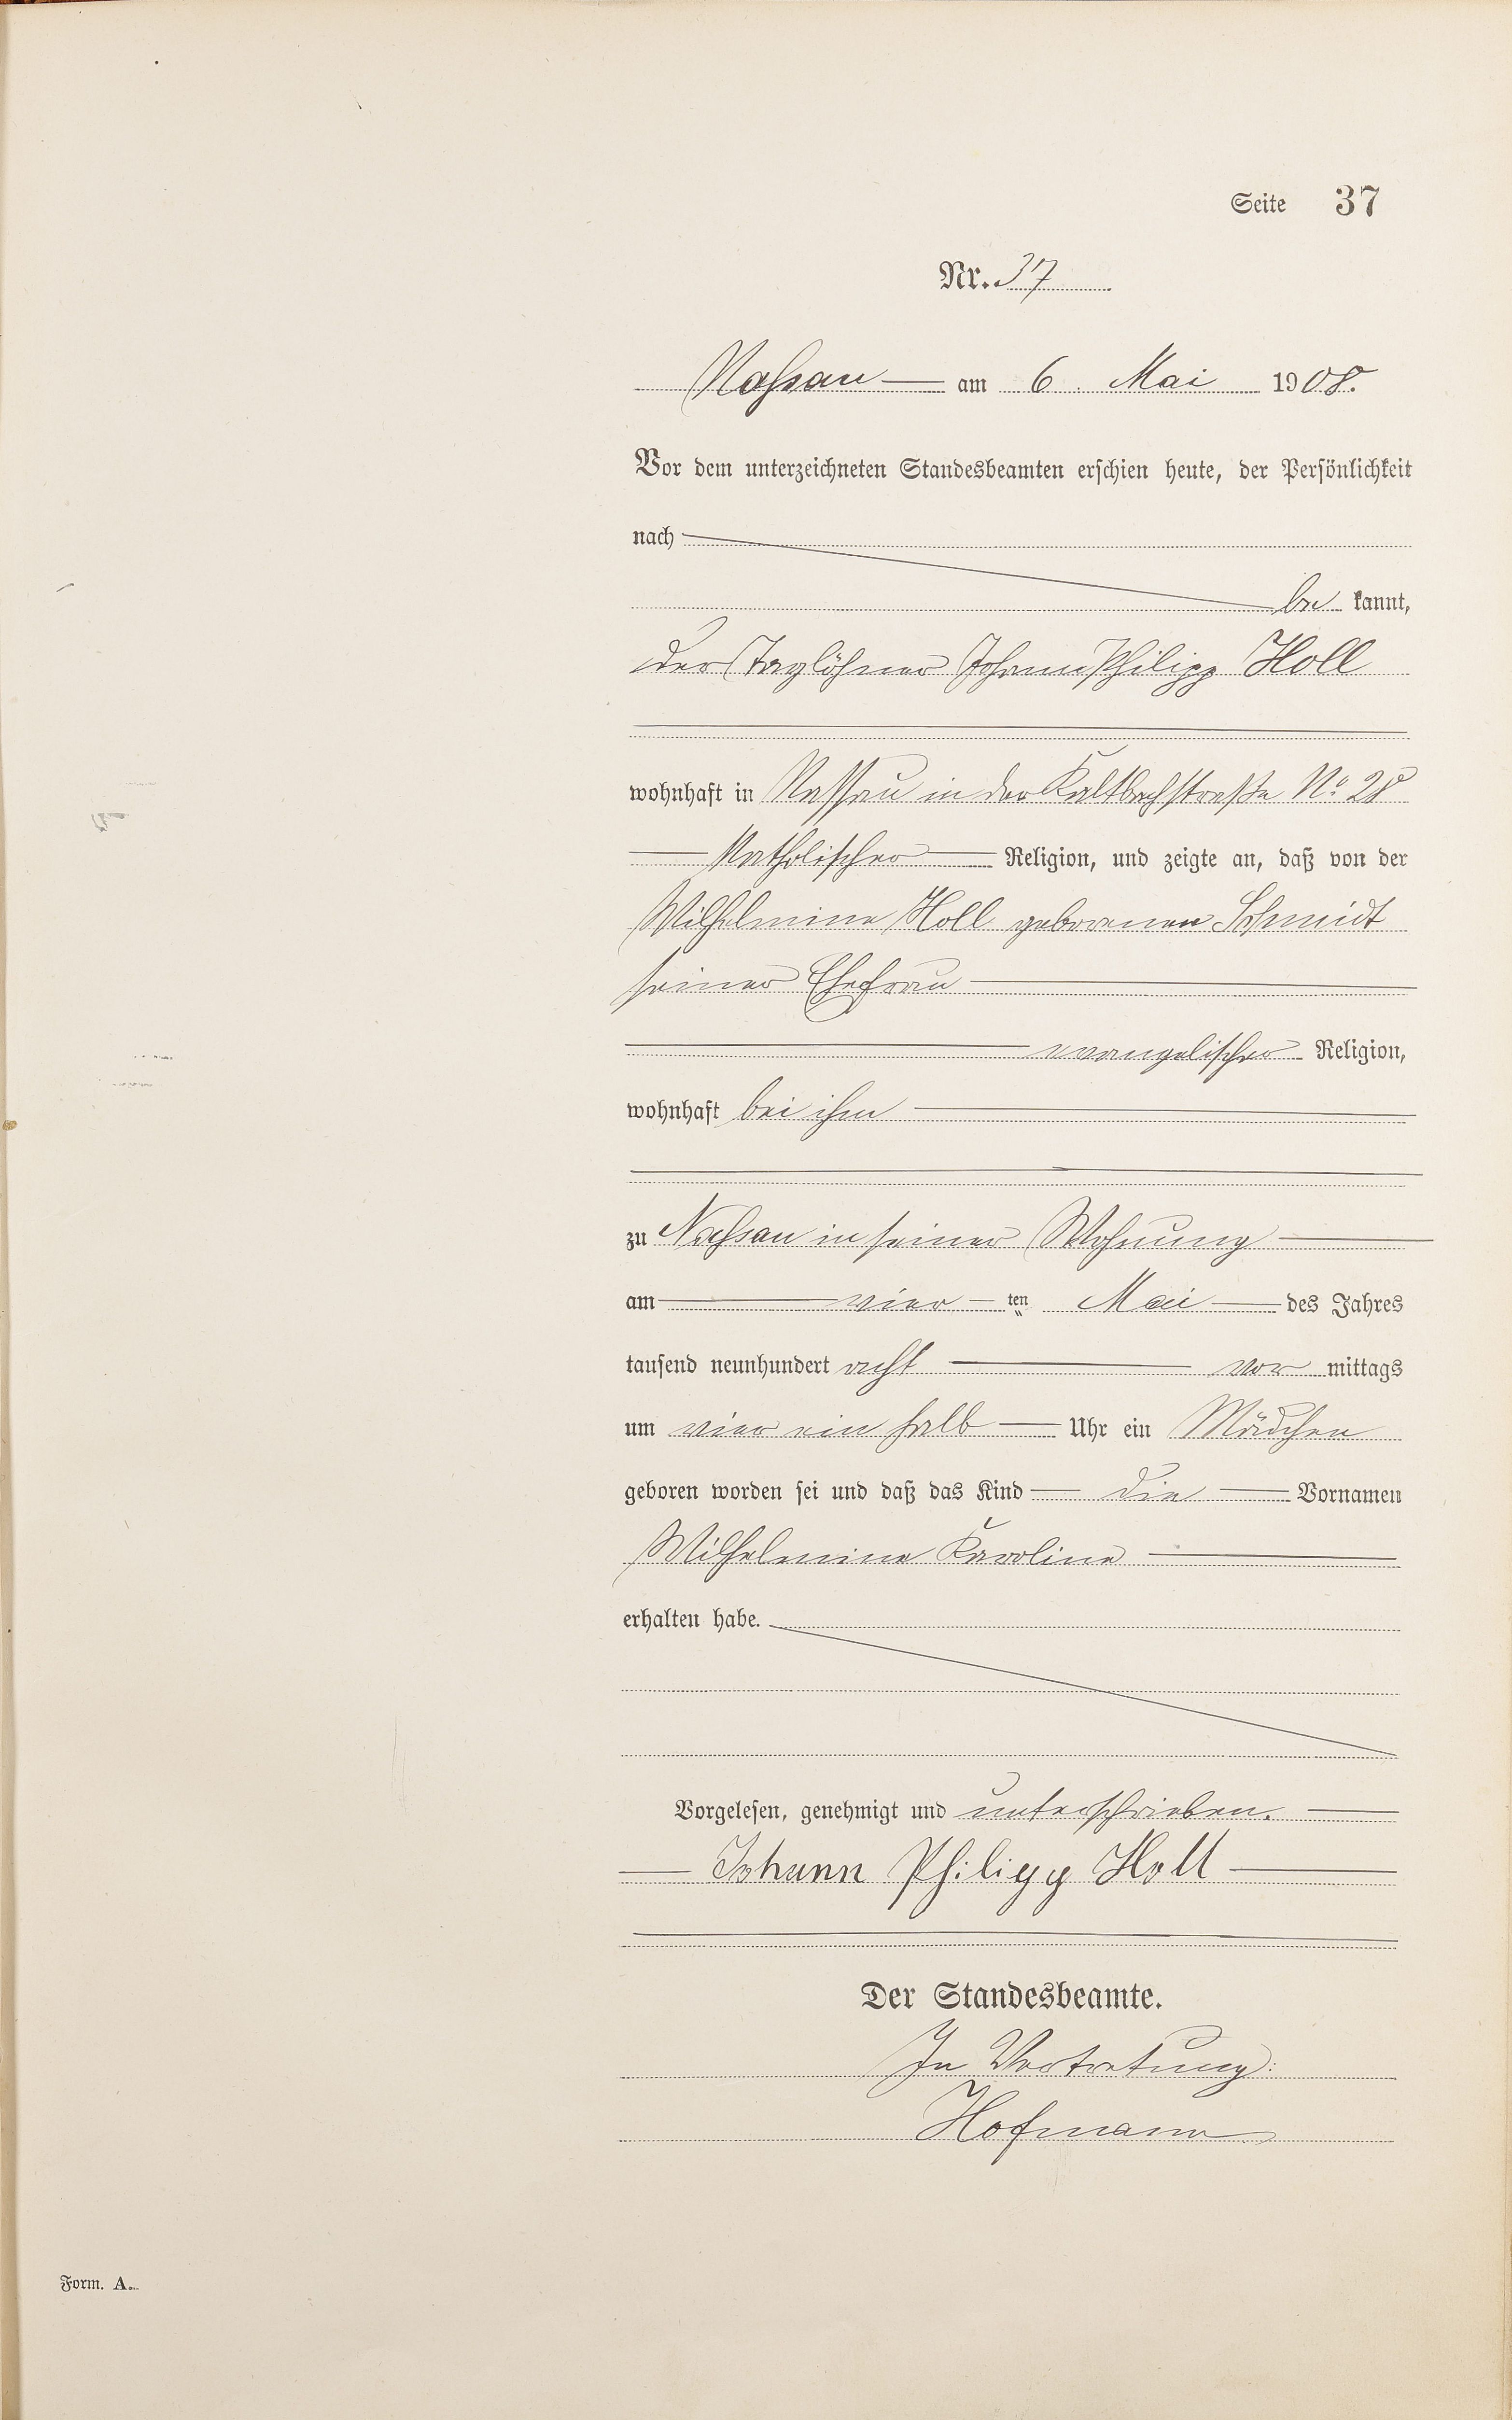 Seite 37
Nr. 37
Nassau am 6. Mai 1908.
Vor dem unterzeichneten Standesbeamten erschien heute, der Persönlichkeit
nach
be kannt,
der Taglöhner Johann Philipp Holl
wohnhaft in Nassau in der Kaltbachstraße No. 28
katholischer Religion, und zeigte an, daß von der
Wilhelmine Holl geborenen Schmidt
seiner Ehefrau
evangelischer Religion,
wohnhaft bei ihm
zu Nassau in seiner Wohnung
am vier ten Mai des Jahres
tausend neunhundert acht vor mittags
um vier ein halb Uhr ein Mädchen
geboren worden sei und daß das Kind die Vornamen
Wilhelmine Karoline
erhalten habe.
Vorgelesen, genehmigt und unterschrieben.
Johann Philipp Holl
Der Standesbeamte.
In Vertretung:
Hofmann
Form. A.